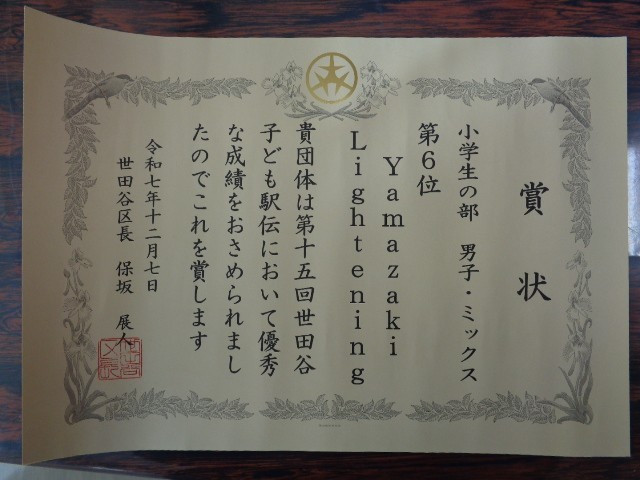 賞状
小学生の部　男子・ミックス
第６位
Yamazaki
Lightening
貴団体は第十五回世田谷
子ども駅伝において優秀
な成績をおさめられまし
たのでこれを賞します
令和七年十二月七日
世田谷区長　保坂　展人